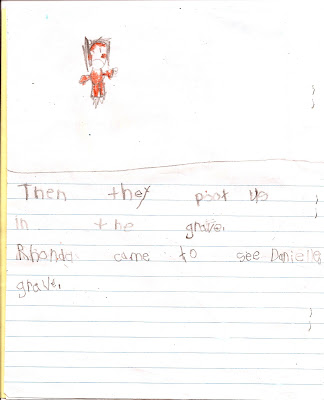 Then they poot us
in the grave.
Rhonda came to see Danielle
grave.